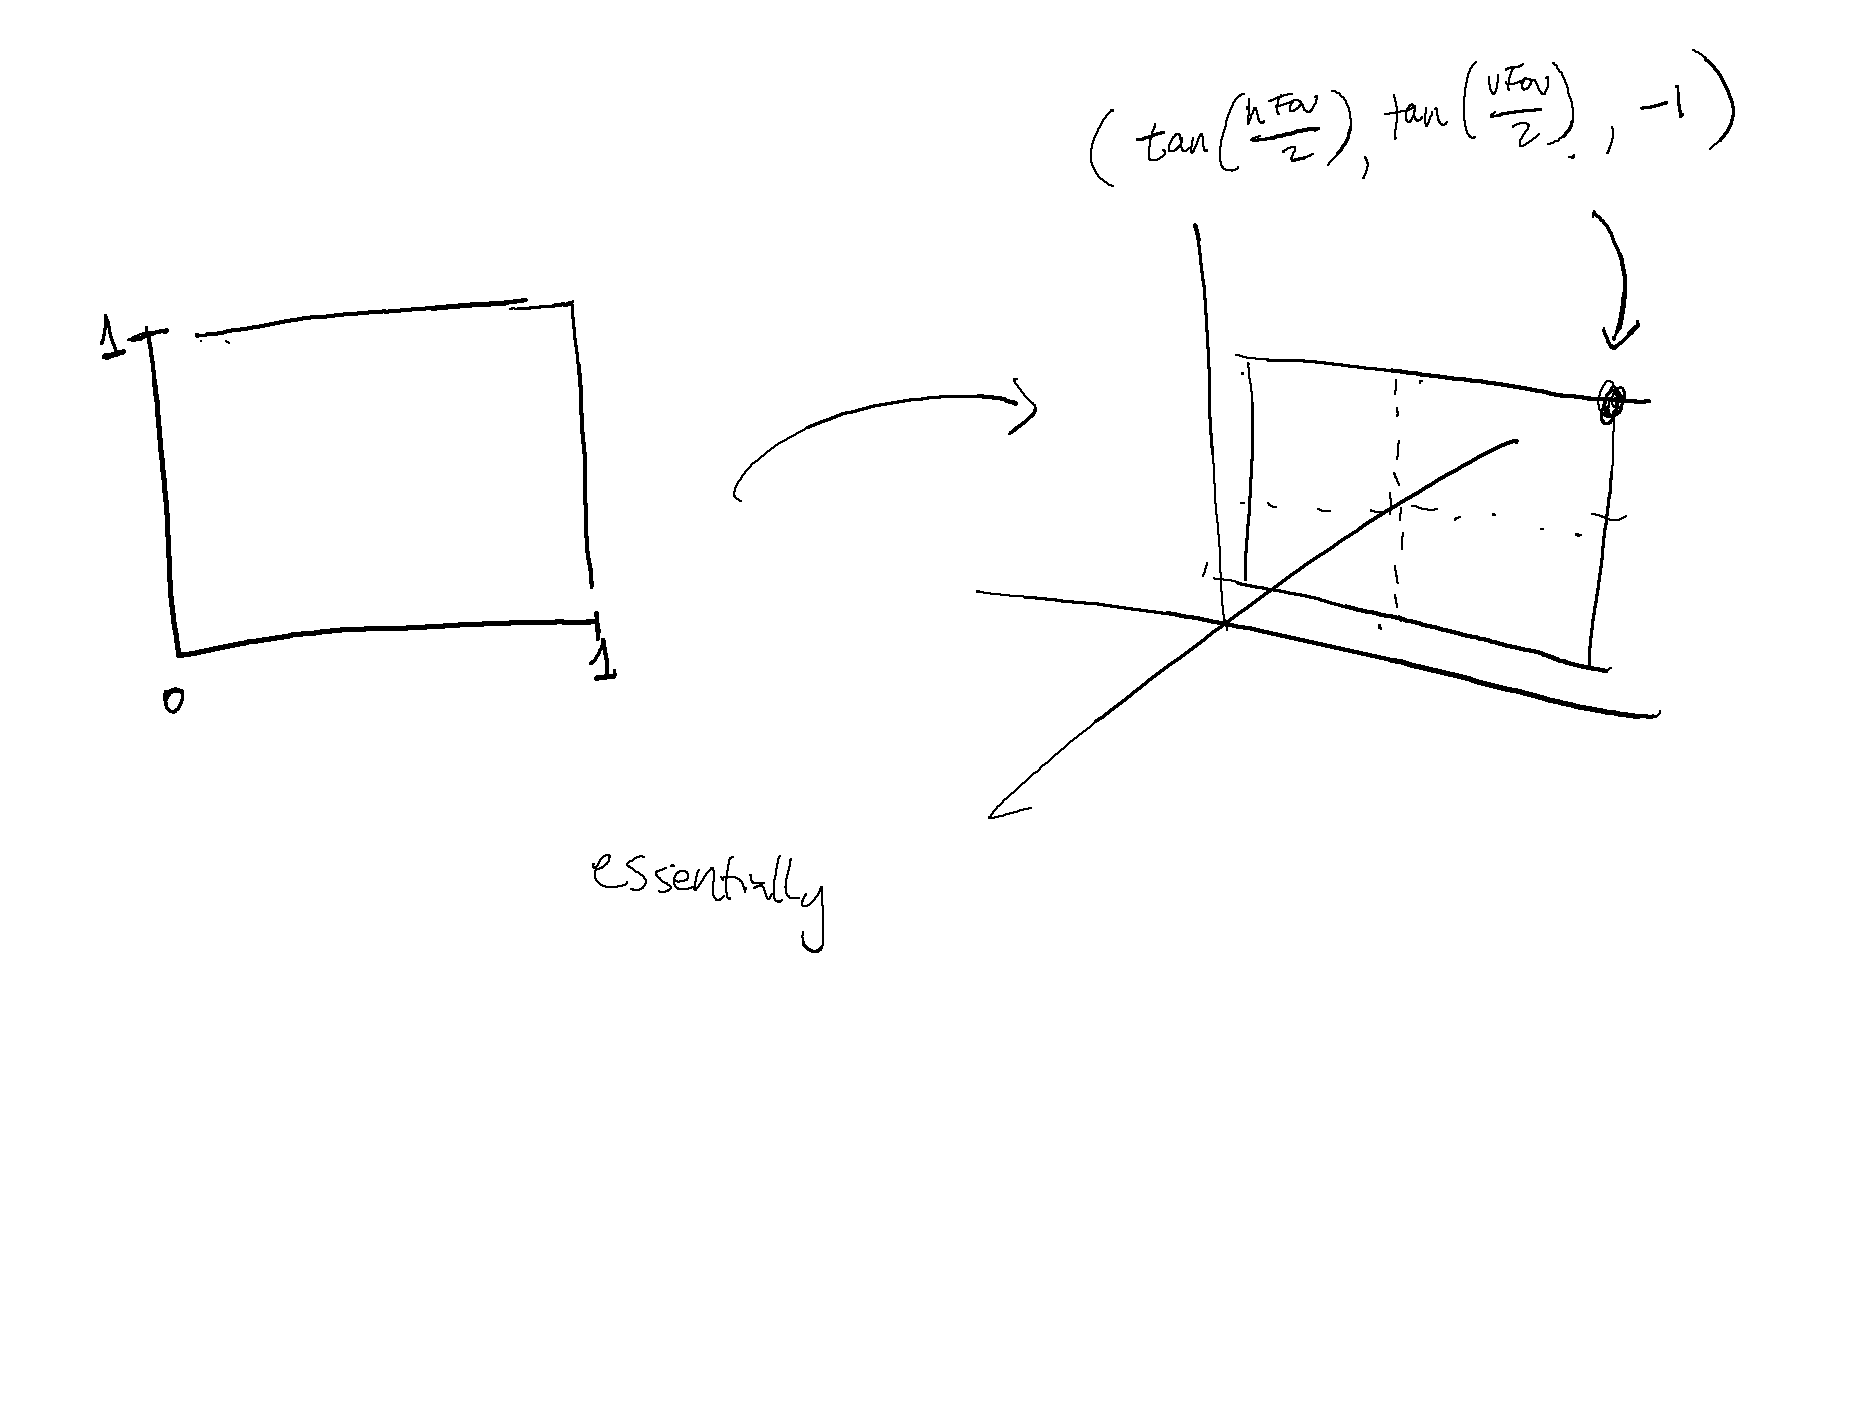 (tan(hFov/2), tan(vFov/2), -1)
1
0
1
essentially